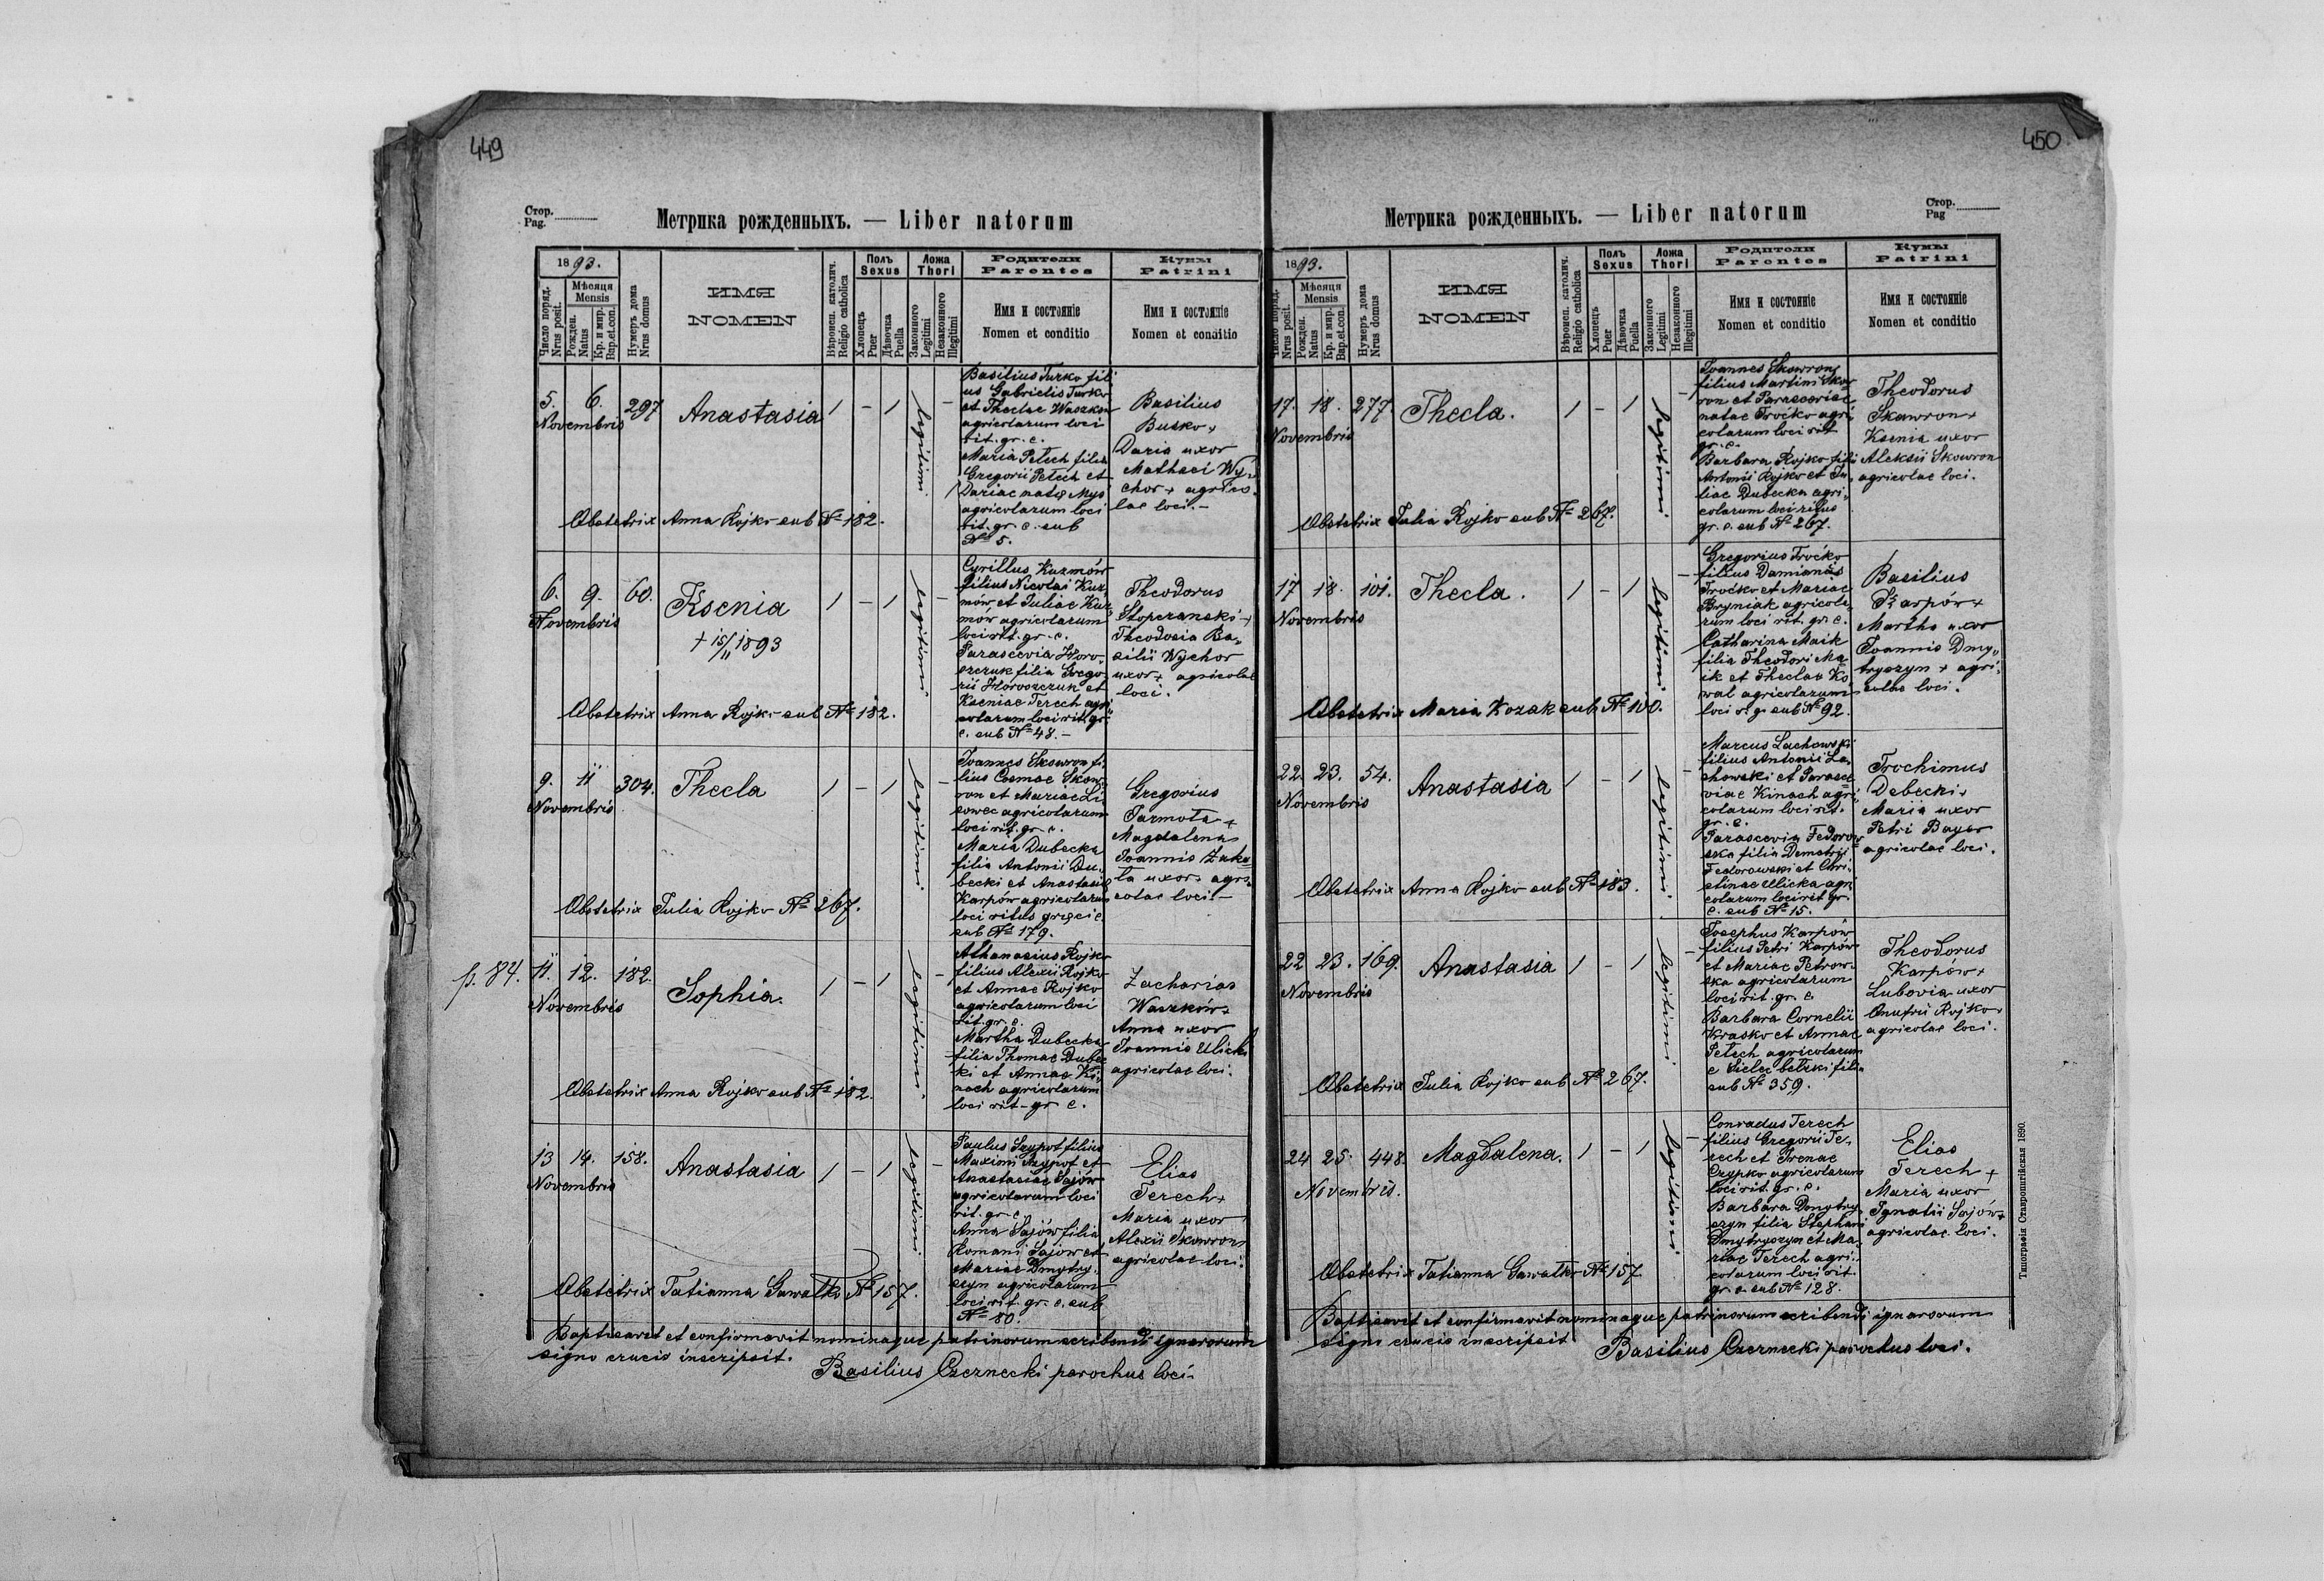 449
Стор.
Pag.
Метрика рожденныхъ. — Liber natorum
1893.
Число поряд.
Nrus posit.
Мѣсяця
Mensis
Рожден.
Natus
Кр. и мир.
Bap.et.con.
Нумеръ дома
Nrus domus
ИМЯ
NOMEN
Вѣроисп. католич.
Religio catholica
Полъ
Sexus
Хлопецъ
Puer
Дѣвочка
Puella
Ложа
Thori
Законного
Legitimi
Незаконного
Illegitimi
Родители
Parentes
Имя и состояніе
Nomen et conditio
Кумы
Patrini
Имя и состояніе
Nomen et conditio
5. 6. 297 Anastasia 1 - 1 legitimi -
Novembris
Basilius Turko fili
us Gabrielis Turko
et Theclae Waszkow
agricolarum loci
rit. gr. c.
Maria Petech filia
Gregorii Petech et
Dariae natae Mys
agricolarum loci
rit. gr. c. sub
No 5.
Basilius
Busko +
Daria uxor
Mathaei Wy„
chor + agrico„
lae loci. -
Obstetrix Anna Rojko sub No 182.
6. 9. 60. Ksenia 1 - 1 legitimi -
Novembris
+ 15/11 1893
Cyrillus Kuzmów
filius Nicolai Kuz„
mów et Juliae Kuz„
mów agricolarum
loci rit. gr. c.
Parascevia Horo„
szczuk filia Grego„
rii Horoszczuk et
Kseniae Terech agri„
colarum loci rit. gr.
c. sub No 48. -
Theodorus
Stoperanski +
Theodosia Ba„
silii Wychor
uxor + agricolae
loci.
Obstetrix Anna Rojko sub No 182.
9. 11 304. Thecla 1 - 1 legitimi -
Novembris
Joannes Skowron fi„
lius Cosmae Skow„
ron et Mariae Li
sowec agricolarum
loci rit. gr. c.
Maria Dubecka
filia Antonii Du„
becki et Anastasiae
Karpów agricolarum
loci ritus graeci c.
sub No 179.
Gregorius
Jarmota +
Magdalena
Joannis Zaka
ta uxor + agri„
colae loci. -
Obstetrix Julia Rojko No 267.
p. 84.
11. 12. 182. Sophia. 1 - 1 legitimi -
Novembris
Athanasius Rojko
filius Alexii Rojko
et Annae Rojko
agricolarum loci
rit. gr. c.
Martha Dubecka
filia Thomae Dubec
ki et Annae Ki„
nach agricolarum
loci rit. gr. c.
Zacharias
Waszków +
Anna uxor
Joannis Ulicki
agricolae loci.
Obstetrix Anna Rojko sub No 182.
13 14. 158. Anastasia 1 - 1 legitimi -
Novembris
Paulus Szypot filius
Maximi Szypot et
Anastasiae Sajów
agricolarum loci
rit. gr. c.
Anna Sajów filia
Romani Sajow et
Mariae Dmytry„
szyn agricolarum
loci rit. gr. c. sub
No 80.
Elias
Terech +
Maria uxor
Alexii Skowron
agricolae loci.
Obstetrix Tatianna Gawałko No 157.
Baptisavit et confirmavit nominaque patrinorum scribendi ignarorum
signo crucis inscripsit.
Basilius Czernecki parochus loci.
450
Стор.
Pag
Метрика рожденныхъ. — Liber natorum
1893.
Число поряд.
Nrus posit.
Мѣсяця
Mensis
Рожден.
Natus
Кр. и мир.
Bap.et.con.
Нумеръ дома
Nrus domus
ИМЯ
NOMEN
Вѣроисп. католич.
Religio catholica
Полъ
Sexus
Хлопецъ
Puer
Дѣвочка
Puella
Ложа
Thori
Законного
Legitimi
Незаконного
Illegitimi
Родители
Parentes
Имя и состояніе
Nomen et conditio
Кумы
Patrini
Имя и состояніе
Nomen et conditio
17. 18. 277. Thecla. 1 - 1 legitimi -
Novembris
Joannes Skowron
filius Martini Skow
ron et Parasceviae
natae Troćko agri„
colarum loci rit.
gr. c.
Barbara Rojko filia
Antonii Rojko et Ju„
liae Dubecka agri„
colarum loci ritus
gr. c. sub No 267.
Theodorus
Skowron +
Ksenia uxor
Aleksii Skowron
agricolae loci.
Obstetrix Julia Rojko sub No 267.
17 18. 101. Thecla. 1 - 1 legitimi -
Novembris
Gregorius Troćko
filius Damianis
Troćko et Mariae
Bryniak agricola„
rum loci rit. gr. c.
Catharina Maik
filia Theodori Ma
ik et Theclae Ko
wal agricolarum
loci r. g. sub No 92.
Basilius
Karpów +
Martha uxor
Joannis Dmy„
tryszyn + agri„
colae loci.
Obstetrix Maria Kozak sub No 100.
22. 23. 54. Anastasia 1 - 1 legitimi -
Novembris
Marcus Lachowski
filius Antonii La„
chowski et Parasce
viae Kinach agri„
colarum loci rit.
gr. c.
Parascevia Fedorow
ska filia Demetrii
Fedorowski et Chri„
stinae Ulicka agri
colarum loci rit gr.
c. sub No 15.
Trochimus
Debecki +
Maria uxor
Petri Bayer
agricolae loci.
Obstetrix Anna Rojko sub No 183.
22 23. 169. Anastasia 1 - 1 legitimi -
Novembris
Josephus Karpów
filius Petri Karpów
et Mariae Petrow„
ska agricolarum
loci rit. gr. c.
Barbara Cornelii
Krasko et Annae
Petech agricolarum
e Sielec bełzki filia
sub No 359.
Theodorus
Karpów +
Lubovia uxor
Onufrii Rojko +
agricolae loci.
Obstetrix Julia Rojko sub No 267.
24 25. 448. Magdalena. 1 - 1 legitimi -
Novembris.
Conradus Terech
filius Gregorii Te„
rech et Irenae
Czypko agricolarum
loci rit. gr. c.
Barbara Dmytry
szyn filia Stephani
Dmytryszyn et Ma„
riae Terech agri„
colarum loci rit.
gr. c. sub No 128.
Elias
Terech +
Maria uxor
Ignatii Sajów +
agricolae loci.
Obstetrix Tatianna Gawałko No 157
Baptisavit et confirmavit nominaque patrinorum scribendi ignarorum
signo crucis inscripsit
Basilius Czernecki parochus loci.
Типографія Ставропигійская 1890.